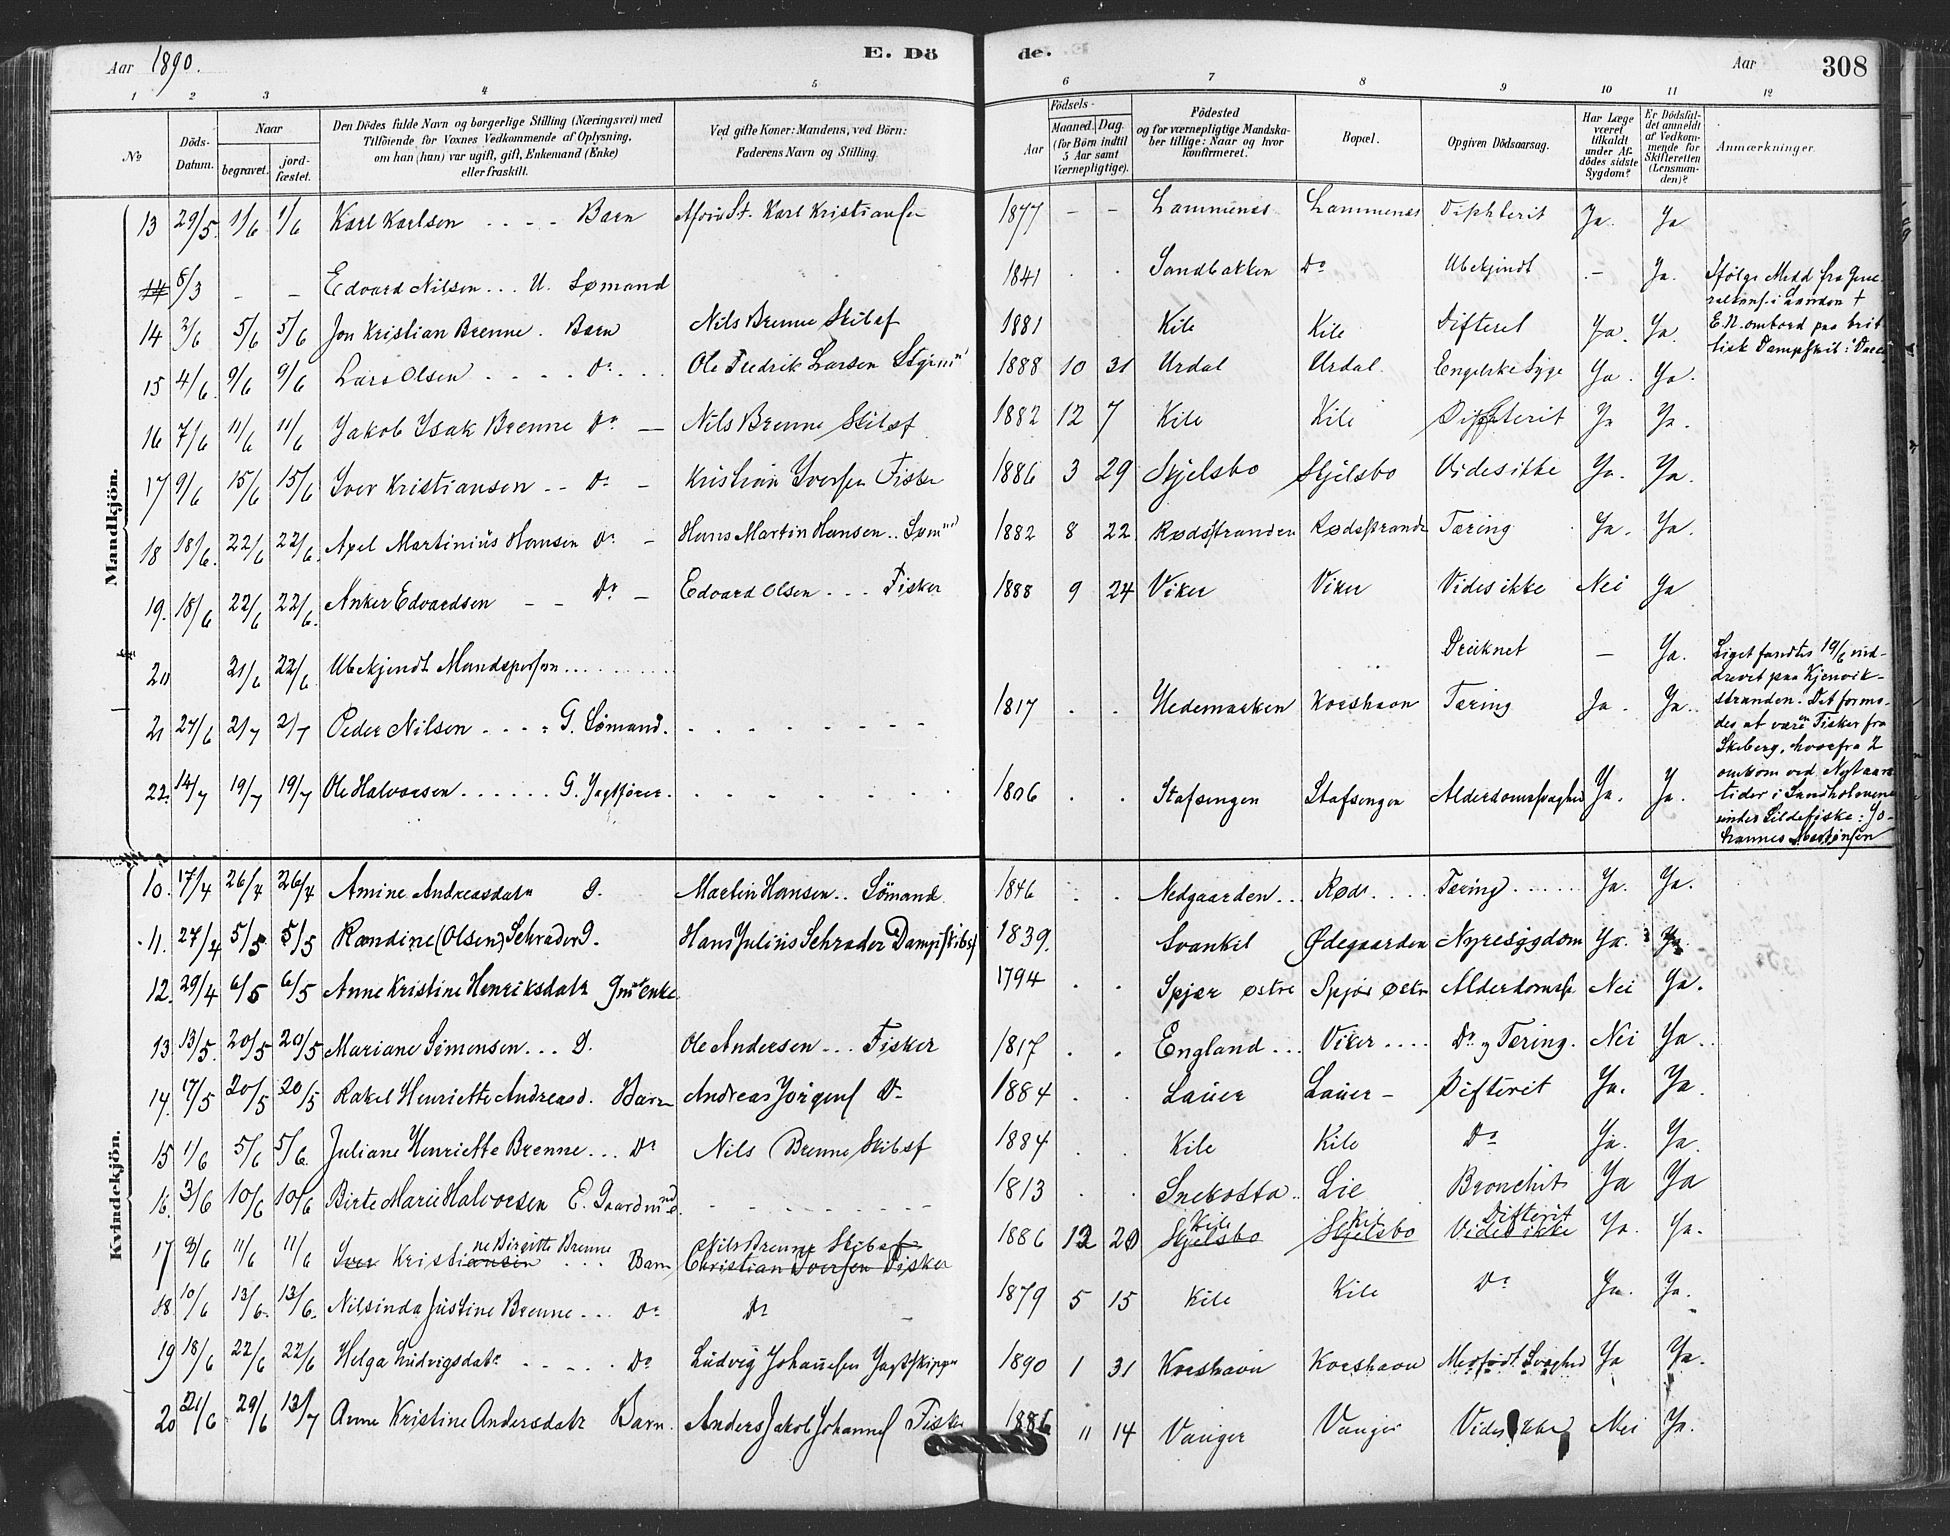 Aar 1890. E. Dö de. Aar 308
1 2 3 4 5 6 7 8 9 10 11 12
No Döds-Datum. Naar begravet. jordfæstet. Den Dödes fulde Navn og borgerlige Stilling (Næringsvei) med Tilföiende, for Voxnes Vedkommende af Oplysning, om han (hun) var ugift, gift, Enkemand (Enke) eller fraskilt. Ved gifte Koner: Mandens, ved Börn: Faderens Navn og Stilling. Födsels- Aar Maaned. Dag. (for Børn indtil 5 Aar samt Værnepligtige). Födested og for værnepligtige Mandskaber tillige: Naar og hvor konfirmeret. Bopæl. Opgiven Dödsaarsag. Har Læge været tilkaldt under Afdödes sidste Sygdom? Er Dödsfaldet anmeldt af Vedkommende for Skifteretten (Lensmanden)? Anmærkninger.
Mandkjön.
13 29/5. 1/6 1/6 Karl Karlsen . . . . Barn Karl Kristiansen 1877 – – Lammenes Lammenes Diphterit Ja. Ja
14 8/3 – – Edvard Nilsen . . . U. Sømand 1841 . . Sandbakken Do Ubekjendt – Ja. Ifølge Medd fra Generalkons. i London † E.N. ombord paa britisk Dampskib
14 3/6 5/6 5/6 Jon Kristian Brenne . Barn Nils Brenne Skibsf 1881 Kile Kile Difterit Ja. Ja.
15 4/6. 9/6 9/6 Lars Olsen . . . . Do . . . Ole Fredrik Larsen Styrm 1888 10 31 Urdal Urdal. Engelske Syge Ja. Ja.
16 7/6 11/6 11/6 Jakob Isak Brenne Do — Nils Brenne Skibsf 1882 12 7 Kile Kile Difterit Ja Ja.
17 9/6 15/6 15/6 Iver Kristiansen - - Do - Kristian Iversen Fisker 1886 3 29 Skjelsbo Skjelsbo Vides ikke Ja. Ja.
18 18/6. 22/6 22/6. Axel Martinius Hansen Do - Hans Martin Hansen . . Søm 1882 8 22 Rødsstranden Rødsstrande Tæring Ja. Ja.
19. 18/6 22/6 22/6. Anker Edvardsen - - Do - Edvard Olsen . . . Fisker 1888 9 24 Viker Viker Vides ikke Nei Ja
20 21/6 22/6. Ubekjendt Mandsperson . . . . . . . Druknet – Ja. Liget fandtes 19/6 inddrevet paa Kjenvikstranden. Det formodes at være en Fisker fra Skeberg, hvorfra 2 omkom ved Nytaarstider i under Sildefiske: Johannes
21 27/6 2/7 2/7 Peder Nilsen . . . . G. Sømand. 1817 . . Hedemarken Korshavn Tæring Ja. Ja.
22. 14/7 19/7 19/7 Ole Halvorsen . . . . . . G. Jagtfører. 1806 . . Stafsengen Stafsengen Alderdomssvaghed Ja. Ja.
Kvindekjön.
10. 17/4 26/4 26/4 Amine Andreasdatr G. Martin Hansen . . Sömand 1846 . . Nedgaarden . . . Røds . . . . Tæring . . . . . Ja. Ja.
11. 27/4 5/5 5/5 Randine (Olsen) Schrader G. Hans Julius Schrader Dampskibsf 1839. Svankil Ødegaarden Nyresygdom Ja. Ja.
12. 29/4 6/5 6/5 Anne Kristine Henriksdatr Enke 1794 . . Spjær østre Spjør østr Alderdomss. Nei Ja.
13 13/5. 20/5 20/5 Mariane Simensen . . . G. Ole Andersen . . . Fisker 1817 . . England . . . Viker . . . . Do og Tæring. Nei Ja.
14. 17/5 20/5 20/5 Rakel Henriette Andreasd. Barn Andreas Jörgens Do 1884 . . Lauer Lauer - Difterit Ja. Ja.
15 1/6 5/6 5/6. Juliane Henriette Brenne . . . Do Nils Brenne Skibsf 1884 . . Kile Kile Do Ja. Ja.
16. 3/6 10/6 10/6 Birte Marie Halvorsen E. Gaardmd. 1813 . . Snekotta . . Lie Bronchit Ja Ja
17 8/6 11/6 11/6 Iver Kristiansen ne Birgitte Brenne . . . Barn Nils Brenne Skibsf Christian Iversen Fisker 1886 12 20 Kile Skjelsbo Kile Skjelsbo Difterit Vides ikke Ja. Ja.
18. 10/6 13/6. 13/6. Nilsinda Justine Brenne . . . Do Do 1879 5 15 Kile Kile Do Ja. Ja.
19 18/6 22/6 22/6 Helga Ludvigsdatr . . . . . Do Ludvig Johansen Jagtskipper 1890 1 31 Korshavn Korshavn Medfödt Svaghed Ja Ja.
20 21/6 29/6 13/7 Anne Kristine Andersdatr Barn. Anders Jakob Johannes Fisker 1886 11 14 Vauger Vauger Vides ikke Nei Ja.